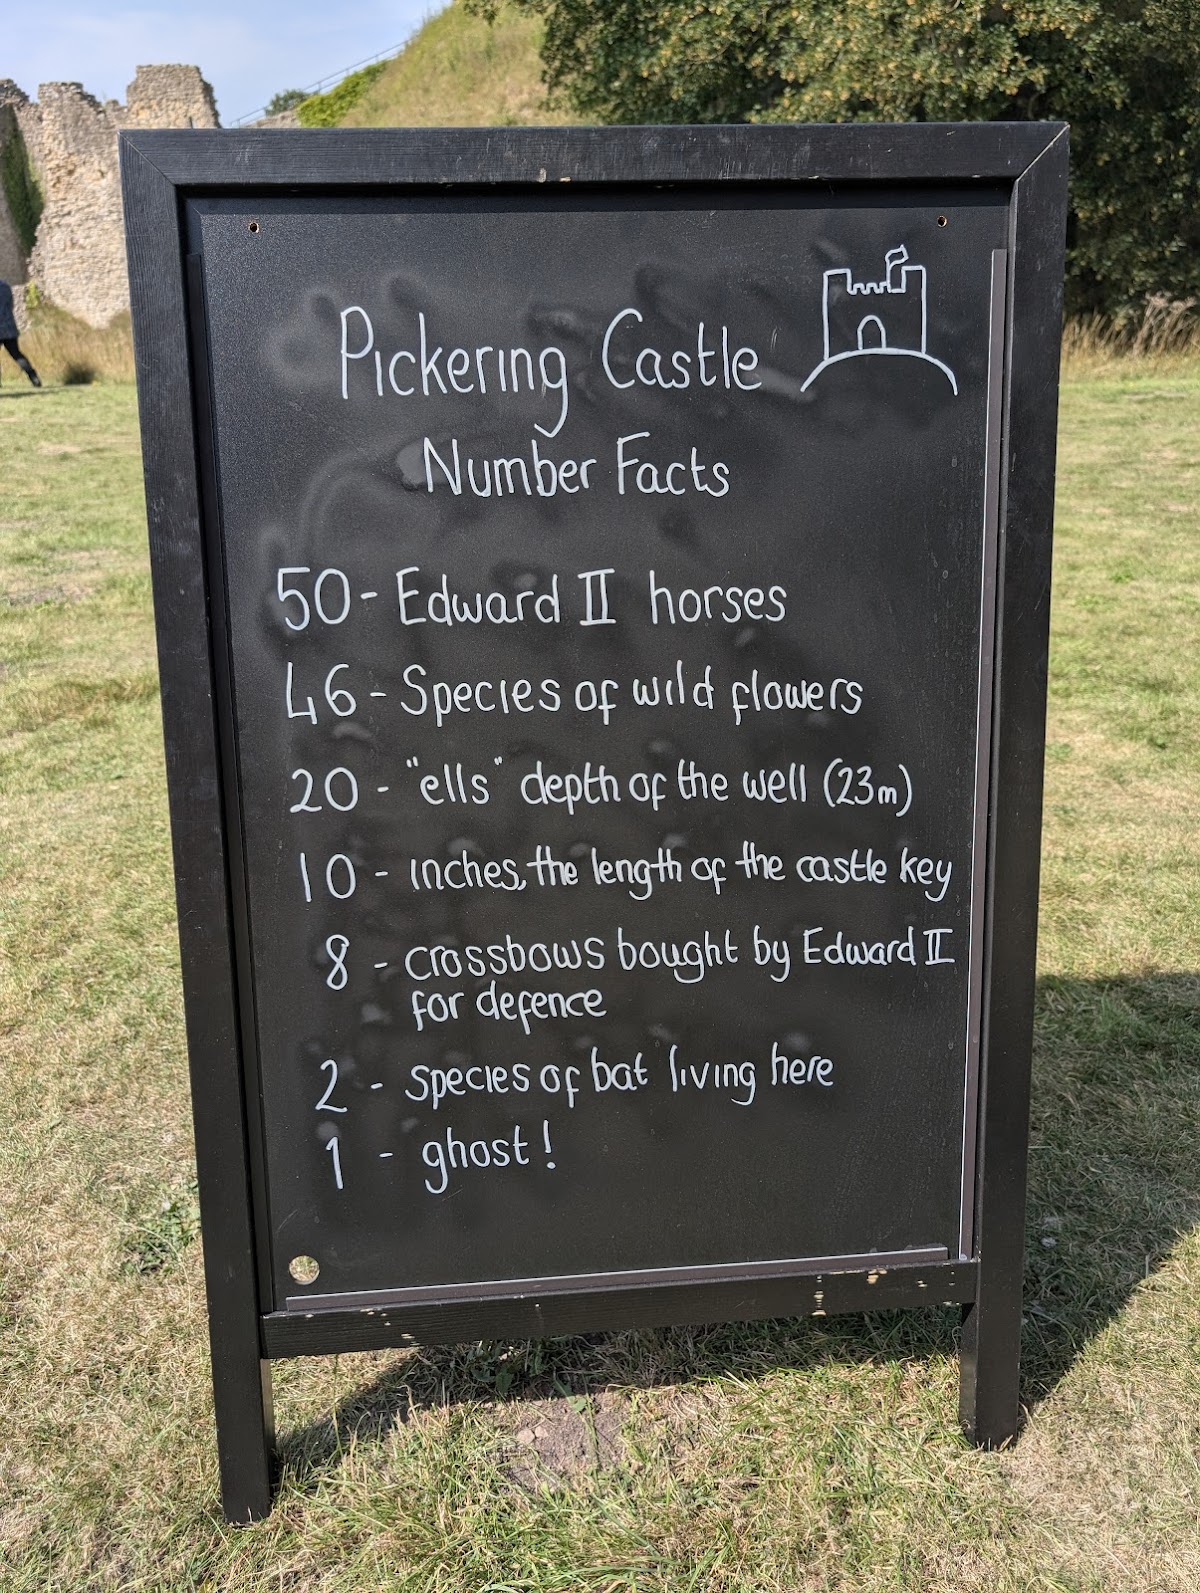 Pickering Castle
Number Facts
50 - Edward II horses
46 - Species of wild flowers
20 - "ells" depth of the well (23m)
10 - inches, the length of the castle key
8 - crossbows bought by Edward II
for defence
2 - species of bat living here
1 - ghost!